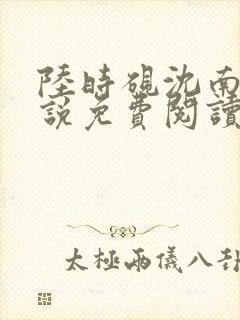 陸時硯沈南
說免費閱讀
太極兩儀八卦